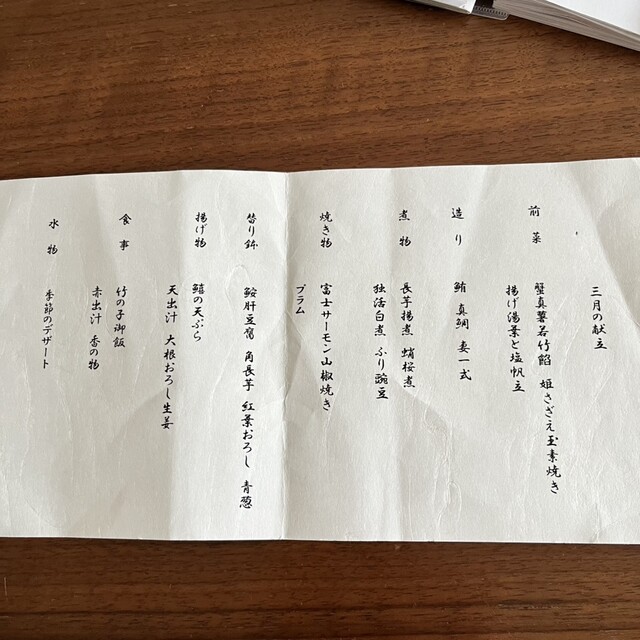 三月の献立
前菜
蟹真薯若竹餡 姫さざえ玉素焼き
揚げ湯葉と塩帆立
造り
鮪 真鯛 妻一式
煮物
長芋揚煮 蛸桜煮
独活白煮 ふり豌豆
焼き物
富士サーモン山椒焼き
プラム
替り鉢
鮟肝豆富 角長芋 紅葉おろし 青葱
揚げ物
鱚の天ぷら
天出汁 大根おろし生姜
食事
竹の子御飯
赤出汁 香の物
水物
季節のデザート